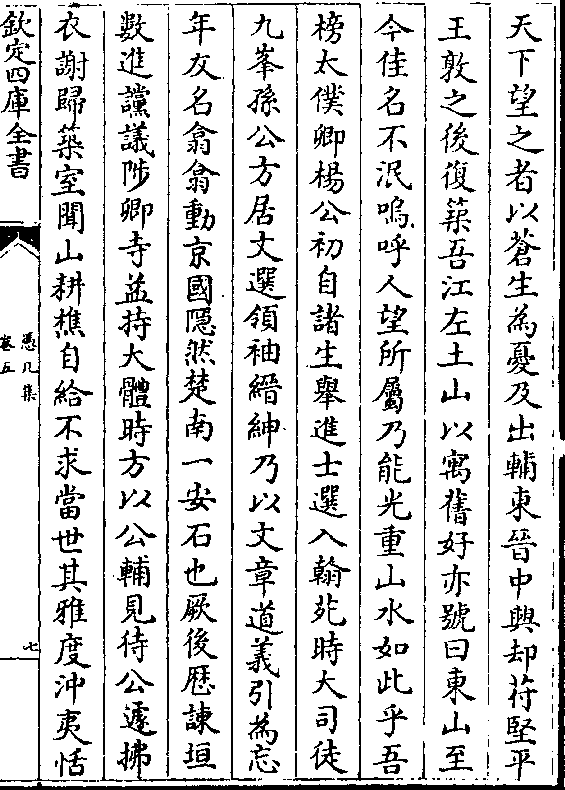 天下望之者以蒼生為憂及出輔東晉中興却苻堅平
王敦之後復築吾江左土山以寓舊好亦號曰東山至
今佳名不泯嗚呼人望所屬乃能光重山水如此乎吾
榜太僕卿楊公初自諸生舉進士選入翰苑時大司徒
九峯孫公方居文選領袖縉紳乃以文章道義引為忘
年友名翕翕動京國隱然楚南一安石也厥後歴諫垣
數進讜議陟卿寺益持大體時方以公輔見待公遽拂
衣謝歸築室聞山耕樵自給不求當世其雅度沖夷恬
欽定四庫全書
憑几集
卷五
七